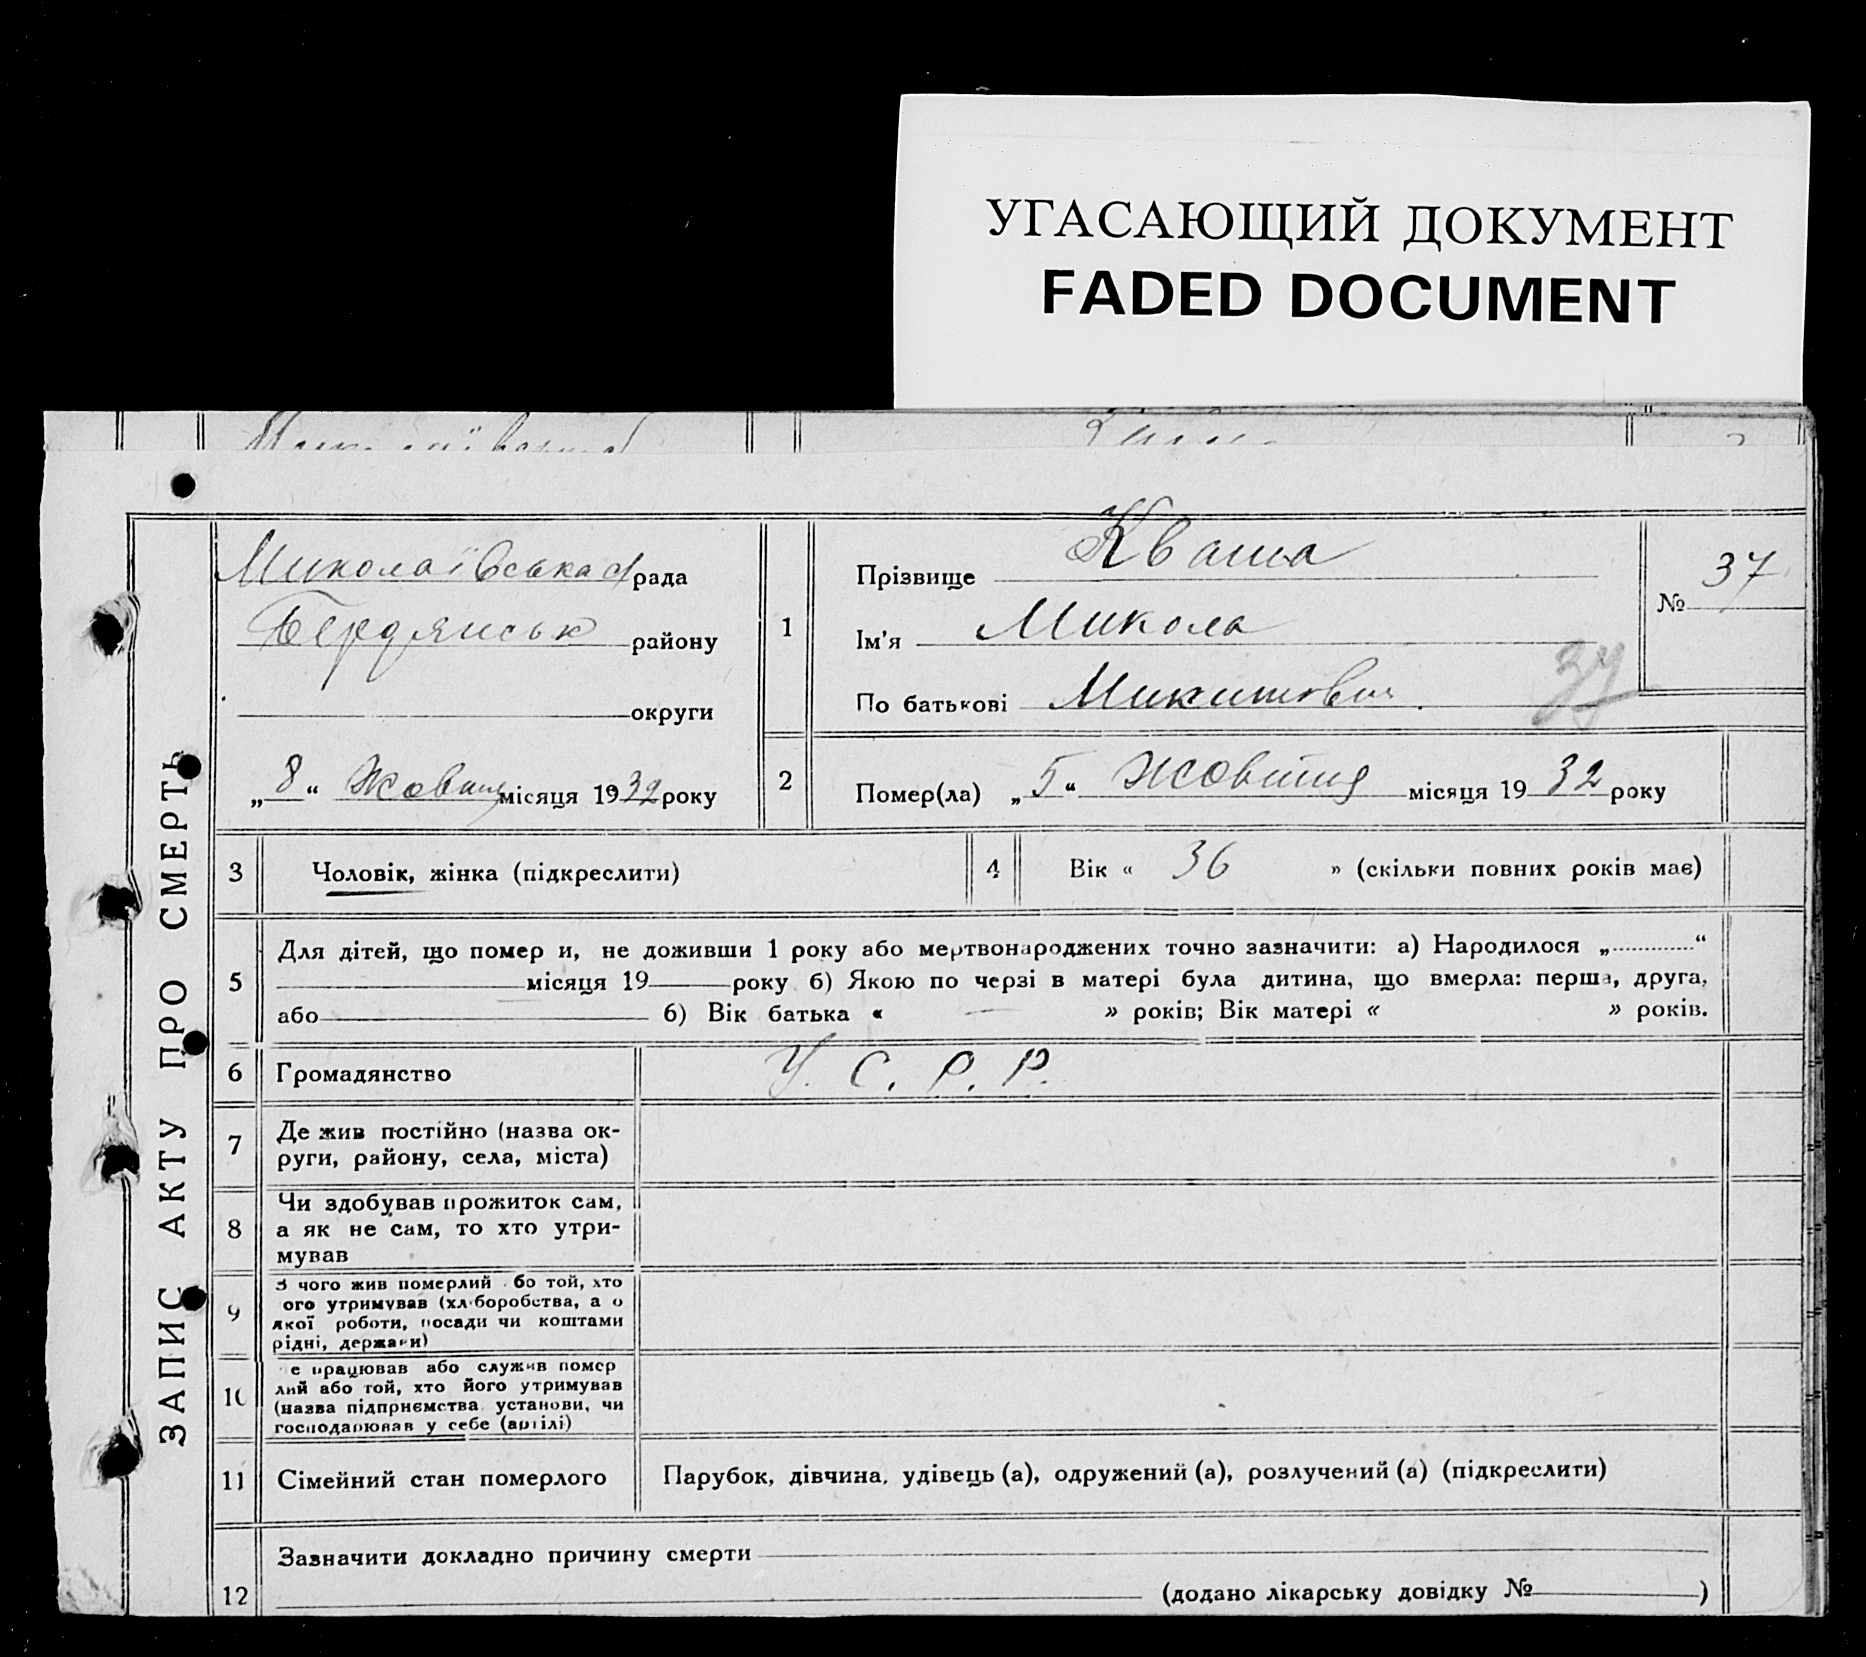 УГАСАЮЩИЙ ДОКУМЕНТ
FADED DOCUMENT
ЗАПИС АКТУ ПРО СМЕРТЬ
Миколаївська с/рада
Бердянськ району
округи
„8“ Жовтня місяця 1932 року
1
Прізвище Кваша
Ім'я Микола
По батькові Микитович
№ 37
37
2
Помер(ла) „5“ Жовтня місяця 1932 року
3 Чоловік, жінка (підкреслити)
4 Вік « 36 » (скільки повних років має)
5
Для дітей, що помер и, не доживши 1 року або мертвонароджених точно зазначити: а) Народилося „ “
місяця 19 року б) Якою по черзі в матері була дитина, що вмерла: перша, друга,
або б) Вік батька « » років; Вік матері « » років.
6 Громадянство У. С. Р. Р.
7
Де жив постійно (назва ок-
руги, району, села, міста)
8
Чи здобував прожиток сам,
а як не сам, то хто утри-
мував
9
З чого жив померлий бо той, хто
ого утримував (хл боробства, а о
якої роботи, посади чи коштами
рідні, держави)
10
е працював або служив помер
лий або той, хто його утримував
(назва підприємства установи, чи
господарював у себе (артілі)
11 Сімейний стан померлого Парубок, дівчина, удівець (а), одружений (а), розлучений (а) (підкреслити)
12
Зазначити докладно причину смерти
(додано лікарську довідку № )